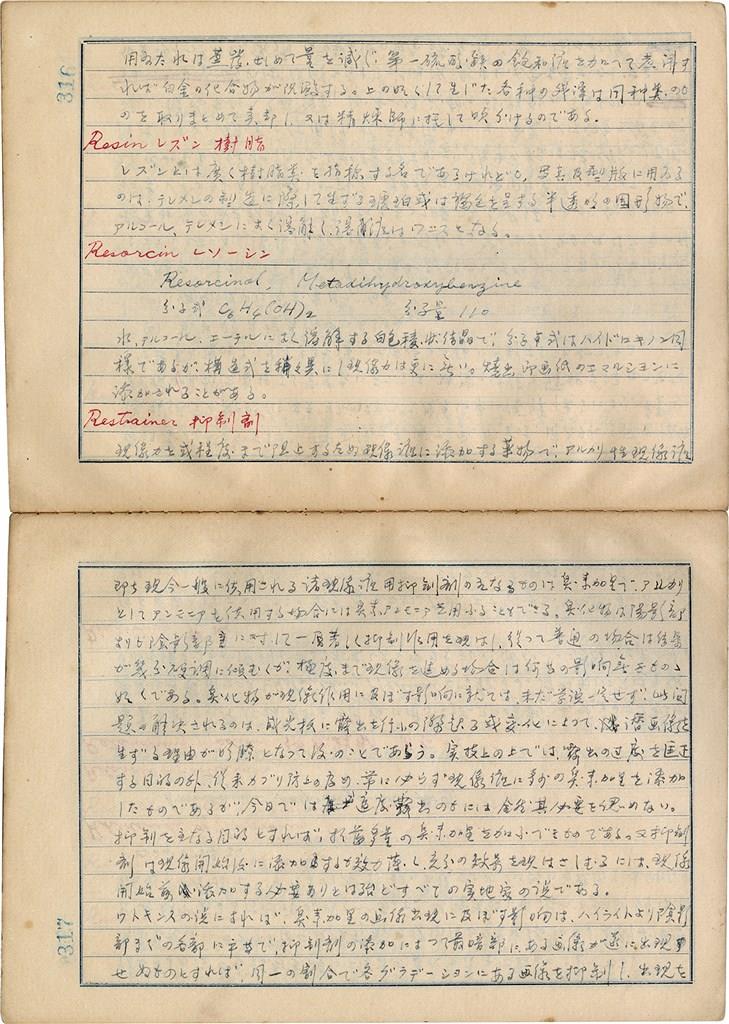 316
用ゐたれば蒸発せしめて量を減じ、第一硫酸鉄の飽和液を加へて煮沸す
れば白金の化合物が沈澱する。上の如くして生じた各種の残渣は同種類のも
のを取りまとめて 又は精煉師に托して のである。
Resin レズン 樹脂
レズンとは広く樹脂類を指称する名であるけれども、写真及製版に用ゐる
のは、テレメンの製造に際して生ずる琥珀或は 色を呈する半透明の固形物で、
アルコール、テレメンによく溶解し、溶解液はワニスとなる。
Resorcin レソーシン
Resorcinol, Metadihydroxybenzine
分子式 C6H4(OH)2 分子量 110
水、アルコール、エーテルによく溶解する白色 状結晶で、分子式はハイドロキノンと同
様であるが、構造式を稍々異にし現像力は更に無い。焼出印画紙のエマルションに
添加されることがある。
Restrainer 抑制剤
現像力を或程度まで阻止するため現像液に添加する薬物で、アルカリ性現像液
即ち現今一般に使用される諸現像液用抑制剤の主なるものは臭素加里で、アルカリ
としてアンモニアを使用する場合には臭素アンモニアを用ふることもできる。臭化物は陽影部
よりか陰影部 に対して一層著しく抑制作用を現はし、従って普通の場合は結果
が幾分硬調に傾むくが、極度まで現像を進める場合は何等の影響無きものゝ
如くである。臭化物が現像作用に及ぼす影響に就ては、未だ 一定せず、此問
題の解決されるのは、感光板に露出を付ふの 或変化によって、 潜画像を
生ずる理由が明瞭となって後のことであらう。実技上の上では、露出の過度を匡正
する目的の外、従来カブリ防止の為め、常に必らず現像液に多少の臭素加里を添加
したものであるが、今日では 適度露出のものには全然其必要を認めない。
抑制を主なる目的とすれば、 多量の臭素加里を加ふべきものである。又抑制
剤は現像開始後に添加するも効力薄く、充分の効果を現はさしむるには、現像
開始前に添加する必要ありとは殆どすべての実地家の説である。
ワトキンスの説によれば、臭素加里の画像出現に及ぼす影響は、ハイライトより陰影
部までの各部に平等で、抑制剤の添加によって最暗部にある画像が遂に出現
せぬものとすれば、同一の割合で各グラデーションにある画像を抑制し、出現を
317